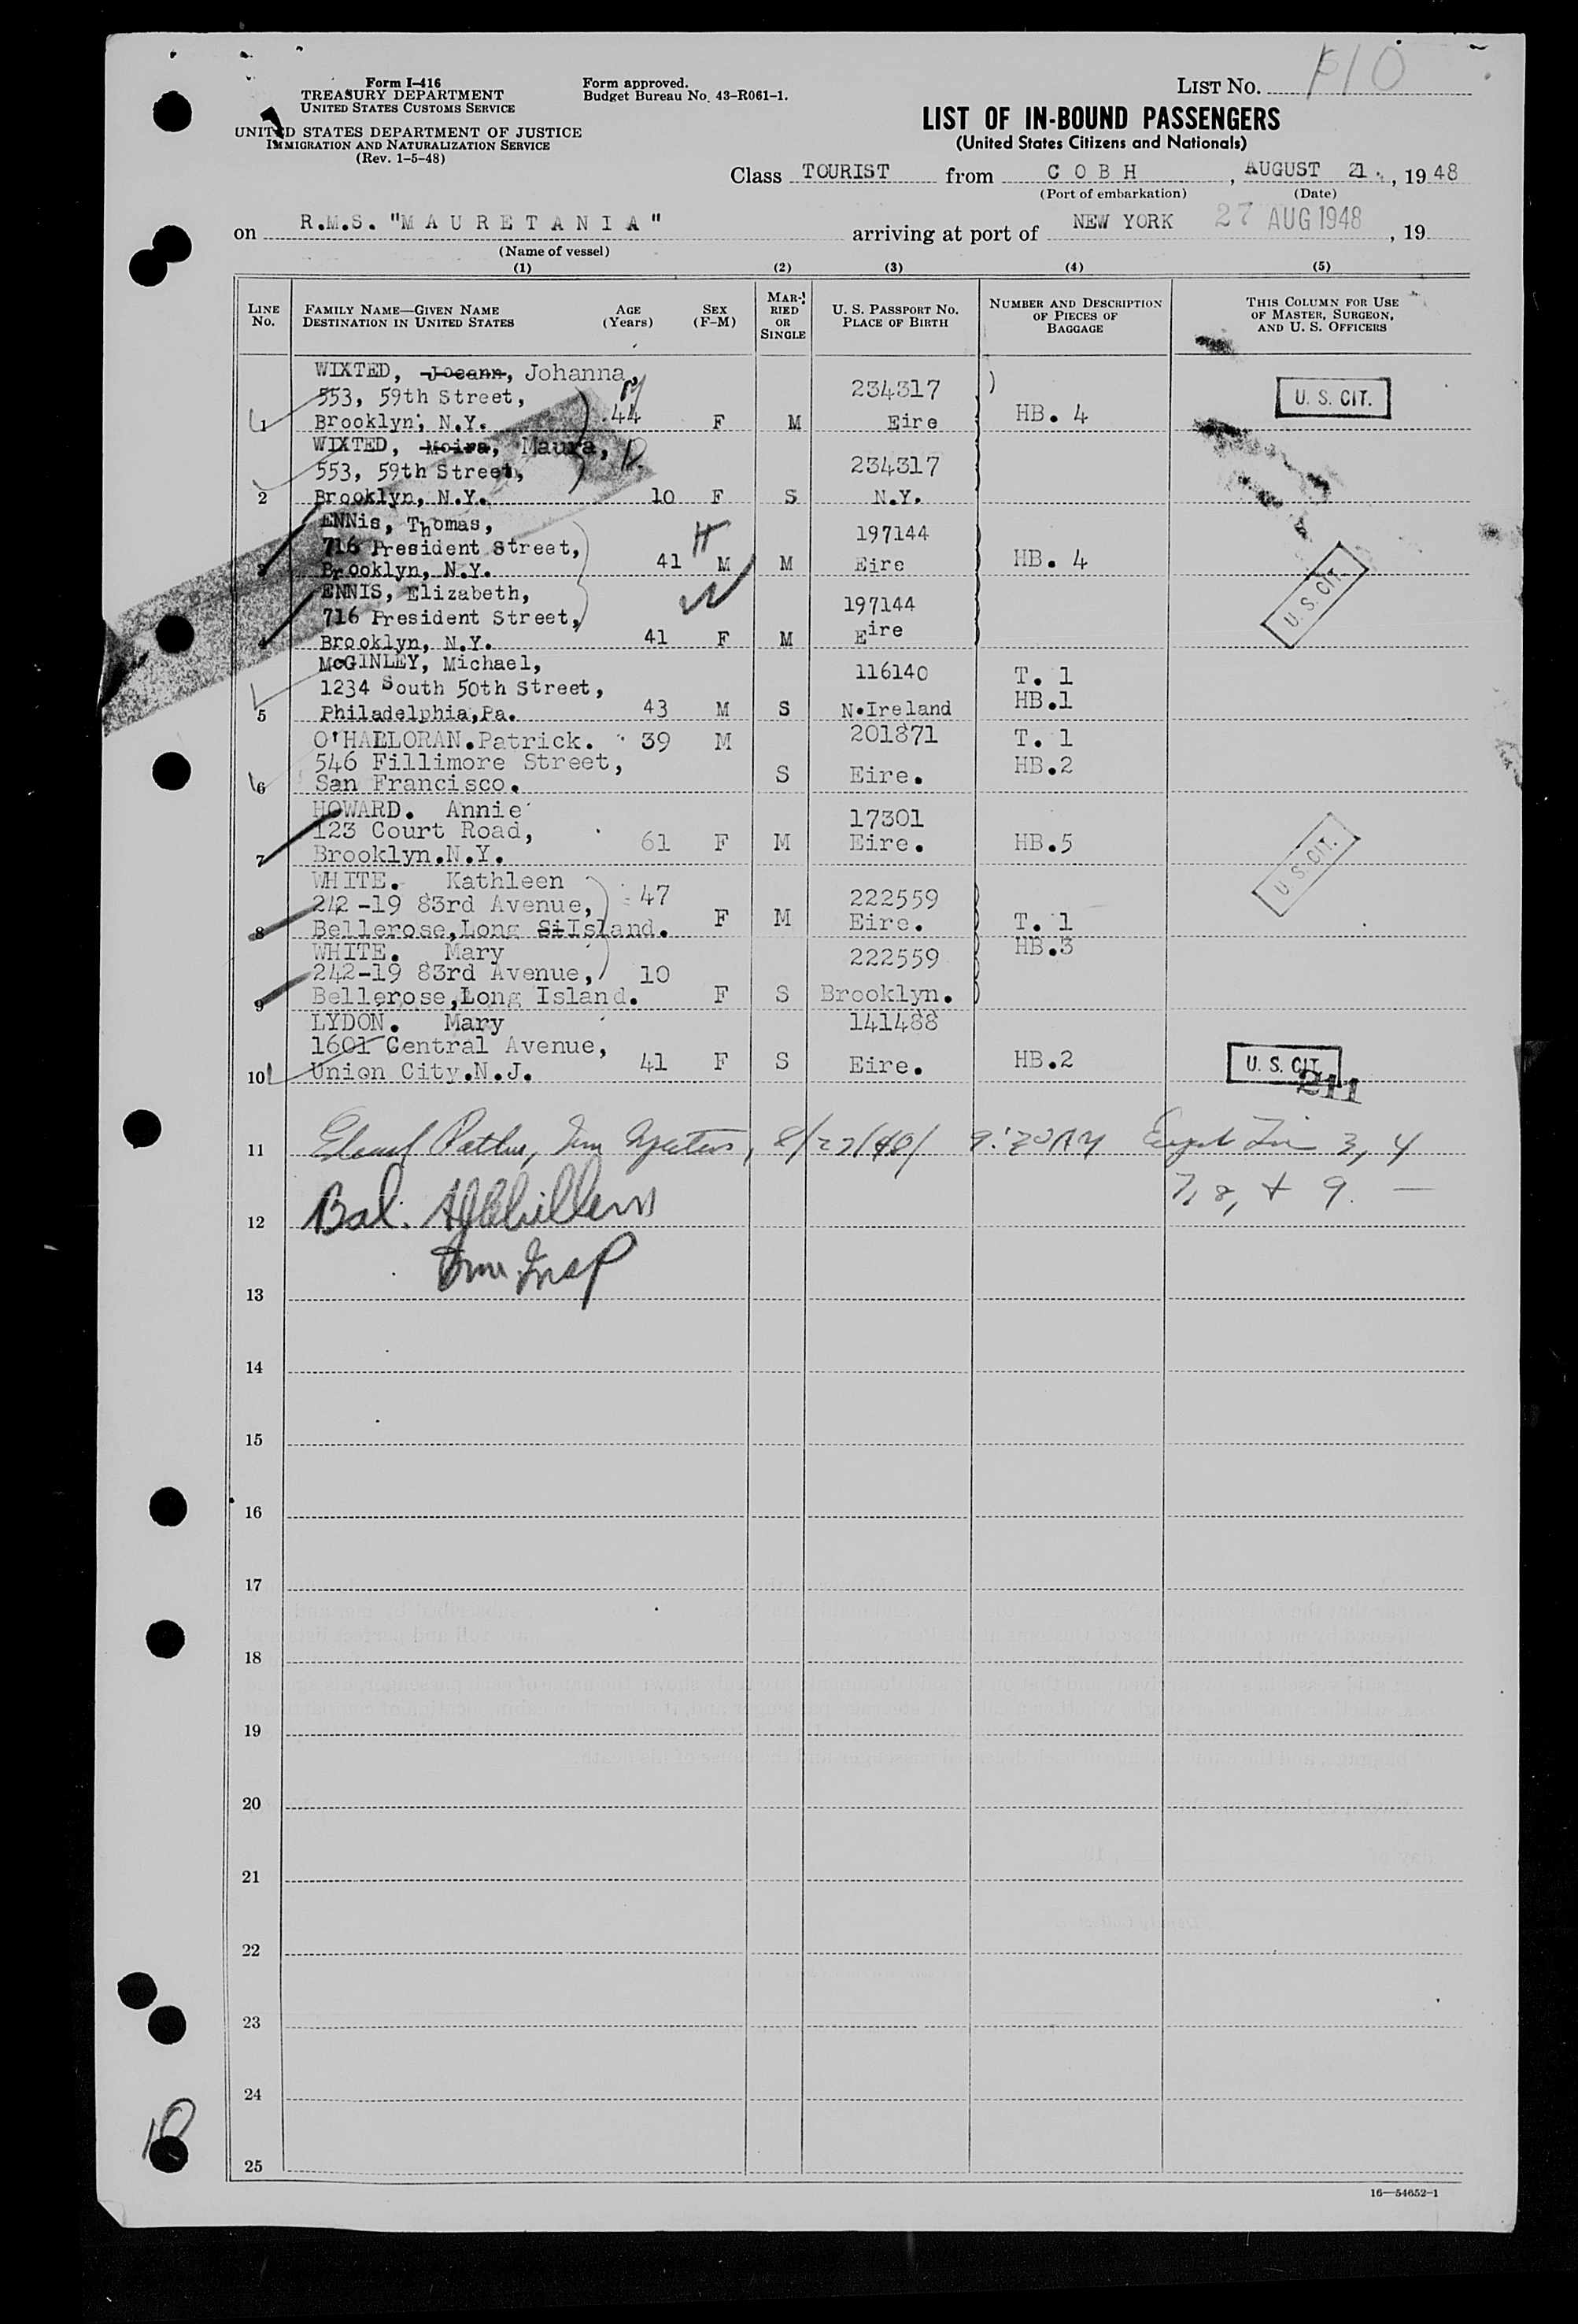 Form I-416
TREASURY DEPARTMENT
UNITED STATES CUSTOMS SERVICE
UNITED STATES DEPARTMENT OF JUSTICE
IMMIGRATION AND NATURALIZATION SERVICE
(Rev. 1-5-48)
Form approved.
Budget Bureau No. 43-R061-1.
LIST No. 10
LIST OF IN-BOUND PASSENGERS
(United States Citizens and Nationals)
Class TOURIST from C O B H, AUGUST 21., 19 48
(Port of embarkation) (Date)
on R.M.S. "M A U R E T A N I A" arriving at port of NEW YORK 27 AUG 1948, 19
(Name of vessel)
(1) (2) (3) (4) (5)
LINE No.
FAMILY NAME—GIVEN NAME
DESTINATION IN UNITED STATES
AGE (Years)
SEX (F-M)
MARRIED OR SINGLE
U. S. PASSPORT No.
PLACE OF BIRTH
NUMBER AND DESCRIPTION OF PIECES OF BAGGAGE
THIS COLUMN FOR USE OF MASTER, SURGEON, AND U. S. OFFICERS
WIXTED, Joeann, Johanna,
553, 59th Street, 234317 U. S. CIT.
1 Brooklyn, N.Y. 44 F M Eire HB. 4
WIXTED, Moira, Maura,
553, 59th Street, 234317
2 Brooklyn, N.Y. 10 F S N.Y.
ENNis, Thomas, H
716 President Street, 197144
3 Brooklyn, N.Y. 41 M M Eire HB. 4
ENNIS, Elizabeth, W U. S. CIT.
716 President Street, 197144
4 Brooklyn, N.Y. 41 F M Eire
McGINLEY, Michael, 116140 T. 1
1234 South 50th Street, HB.1
5 Philadelphia,Pa. 43 M S N.Ireland
O'HALLORAN.Patrick. 39 M 201871 T. 1
546 Fillimore Street, HB.2
6 San Francisco. S Eire.
HOWARD. Annie 17301
123 Court Road, 61 F M Eire. HB.5 U. S. CIT.
7 Brooklyn.N.Y.
WHITE. Kathleen 47 222559
242-19 83rd Avenue, F M Eire. T. 1
8 Bellerose,Long SiIsland. HB.3
WHITE. Mary 222559
242-19 83rd Avenue, 10
9 Bellerose,Long Island. F S Brooklyn.
LYDON. Mary 141488
1601 Central Avenue, 41 F S Eire. HB.2 U. S. CIT.
10 Union City.N.J. 211
11 3, 4
7, 8, + 9. —
12 Bal.
Imm. Insp
13
14
15
16
17
18
19
20
21
22
23
24
25
16—54652-1
10